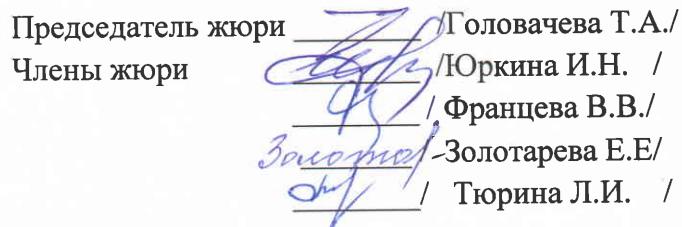 Председатель жюри ________ /Головачева Т.А./
Члены жюри ________ /Юркина И.Н. /
________ / Францева В.В./
________ /-Золотарева Е.Е/
________ / Тюрина Л.И. /